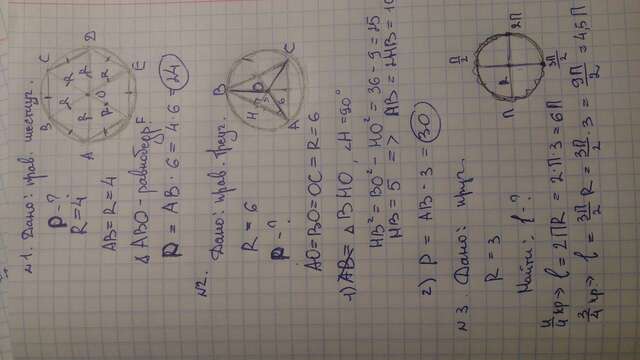 №1. Дано: прав. шестиуг.
P - ?
R = 4
AB = R = 4
Δ ABO - равнобедр.
P = AB · 6 = 4 · 6 = 24
B C
A D
F E
O
R R R R R R
№2.
Дано: прав. треуг.
R = 6
P - ?
AO = BO = OC = R = 6
B
H
O
3
6
A C
1) AB = Δ BHO, ∠H = 90°
HB² = BO² - HO² = 36 - 9 = 25
HB = 5 => AB = 2HB = 10
2) P = AB · 3 = 30
№3. Дано: круг.
R = 3
Найти: l - ?
П/2
П R 2П
3П/2
4/4 кр → l = 2ПR = 2·П·3 = 6П
3/4 кр → l = 3П/2 R = 3П/2 · 3 = 9П/2 = 4,5П